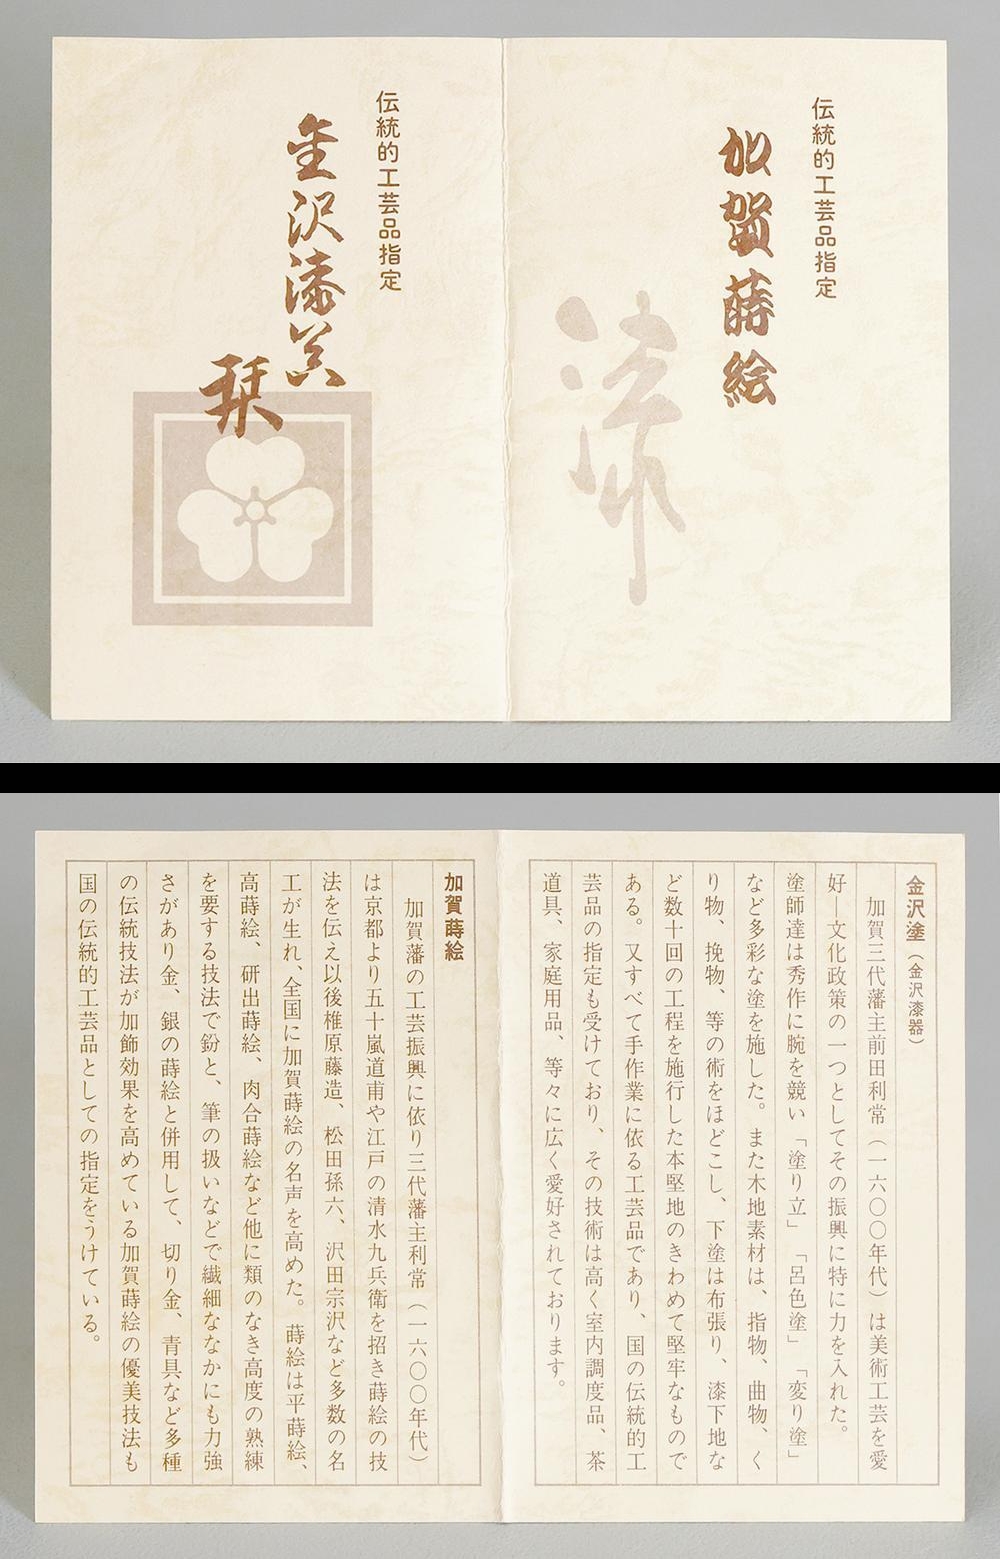 伝統的工芸品指定
加賀蒔絵
漆
伝統的工芸品指定
金沢漆器
栞
金沢塗（金沢漆器）
加賀三代藩主前田利常（一六〇〇年代）は美術工芸を愛
好—文化政策の一つとしてその振興に特に力を入れた。
塗師達は秀作に腕を競い「塗り立」「呂色塗」「変り塗」
など多彩な塗を施した。また木地素材は、指物、曲物、く
り物、挽物、等の術をほどこし、下塗は布張り、漆下地な
ど数十回の工程を施行した本堅地のきわめて堅牢なもので
ある。又すべて手作業に依る工芸品であり、国の伝統的工
芸品の指定も受けており、その技術は高く室内調度品、茶
道具、家庭用品、等々に広く愛好されております。
加賀蒔絵
加賀藩の工芸振興に依り三代藩主利常（一六〇〇年代）
は京都より五十嵐道甫や江戸の清水九兵衛を招き蒔絵の技
法を伝え以後椎原藤造、松田孫六、沢田宗沢など多数の名
工が生れ、全国に加賀蒔絵の名声を高めた。蒔絵は平蒔絵、
高蒔絵、研出蒔絵、肉合蒔絵など他に類のなき高度の熟練
を要する技法で鈖と、筆の扱いなどで繊細ななかにも力強
さがあり金、銀の蒔絵と併用して、切り金、青具など多種
の伝統技法が加飾効果を高めている加賀蒔絵の優美技法も
国の伝統的工芸品としての指定をうけている。